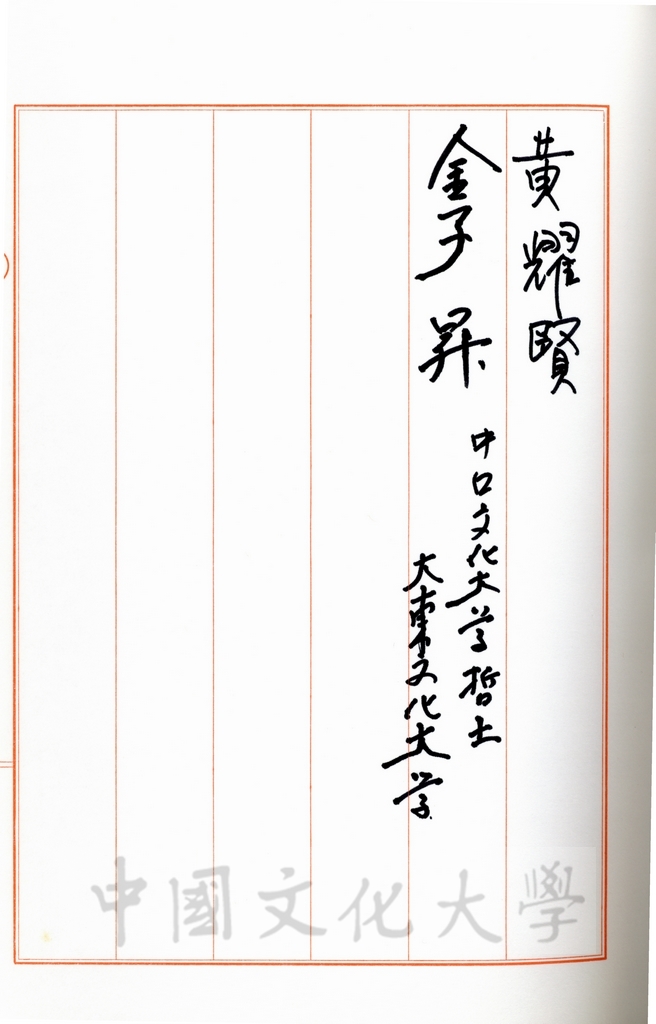 黃耀賢
金子昇
中口文化大学哲士
大東文化大学
中國文化大學